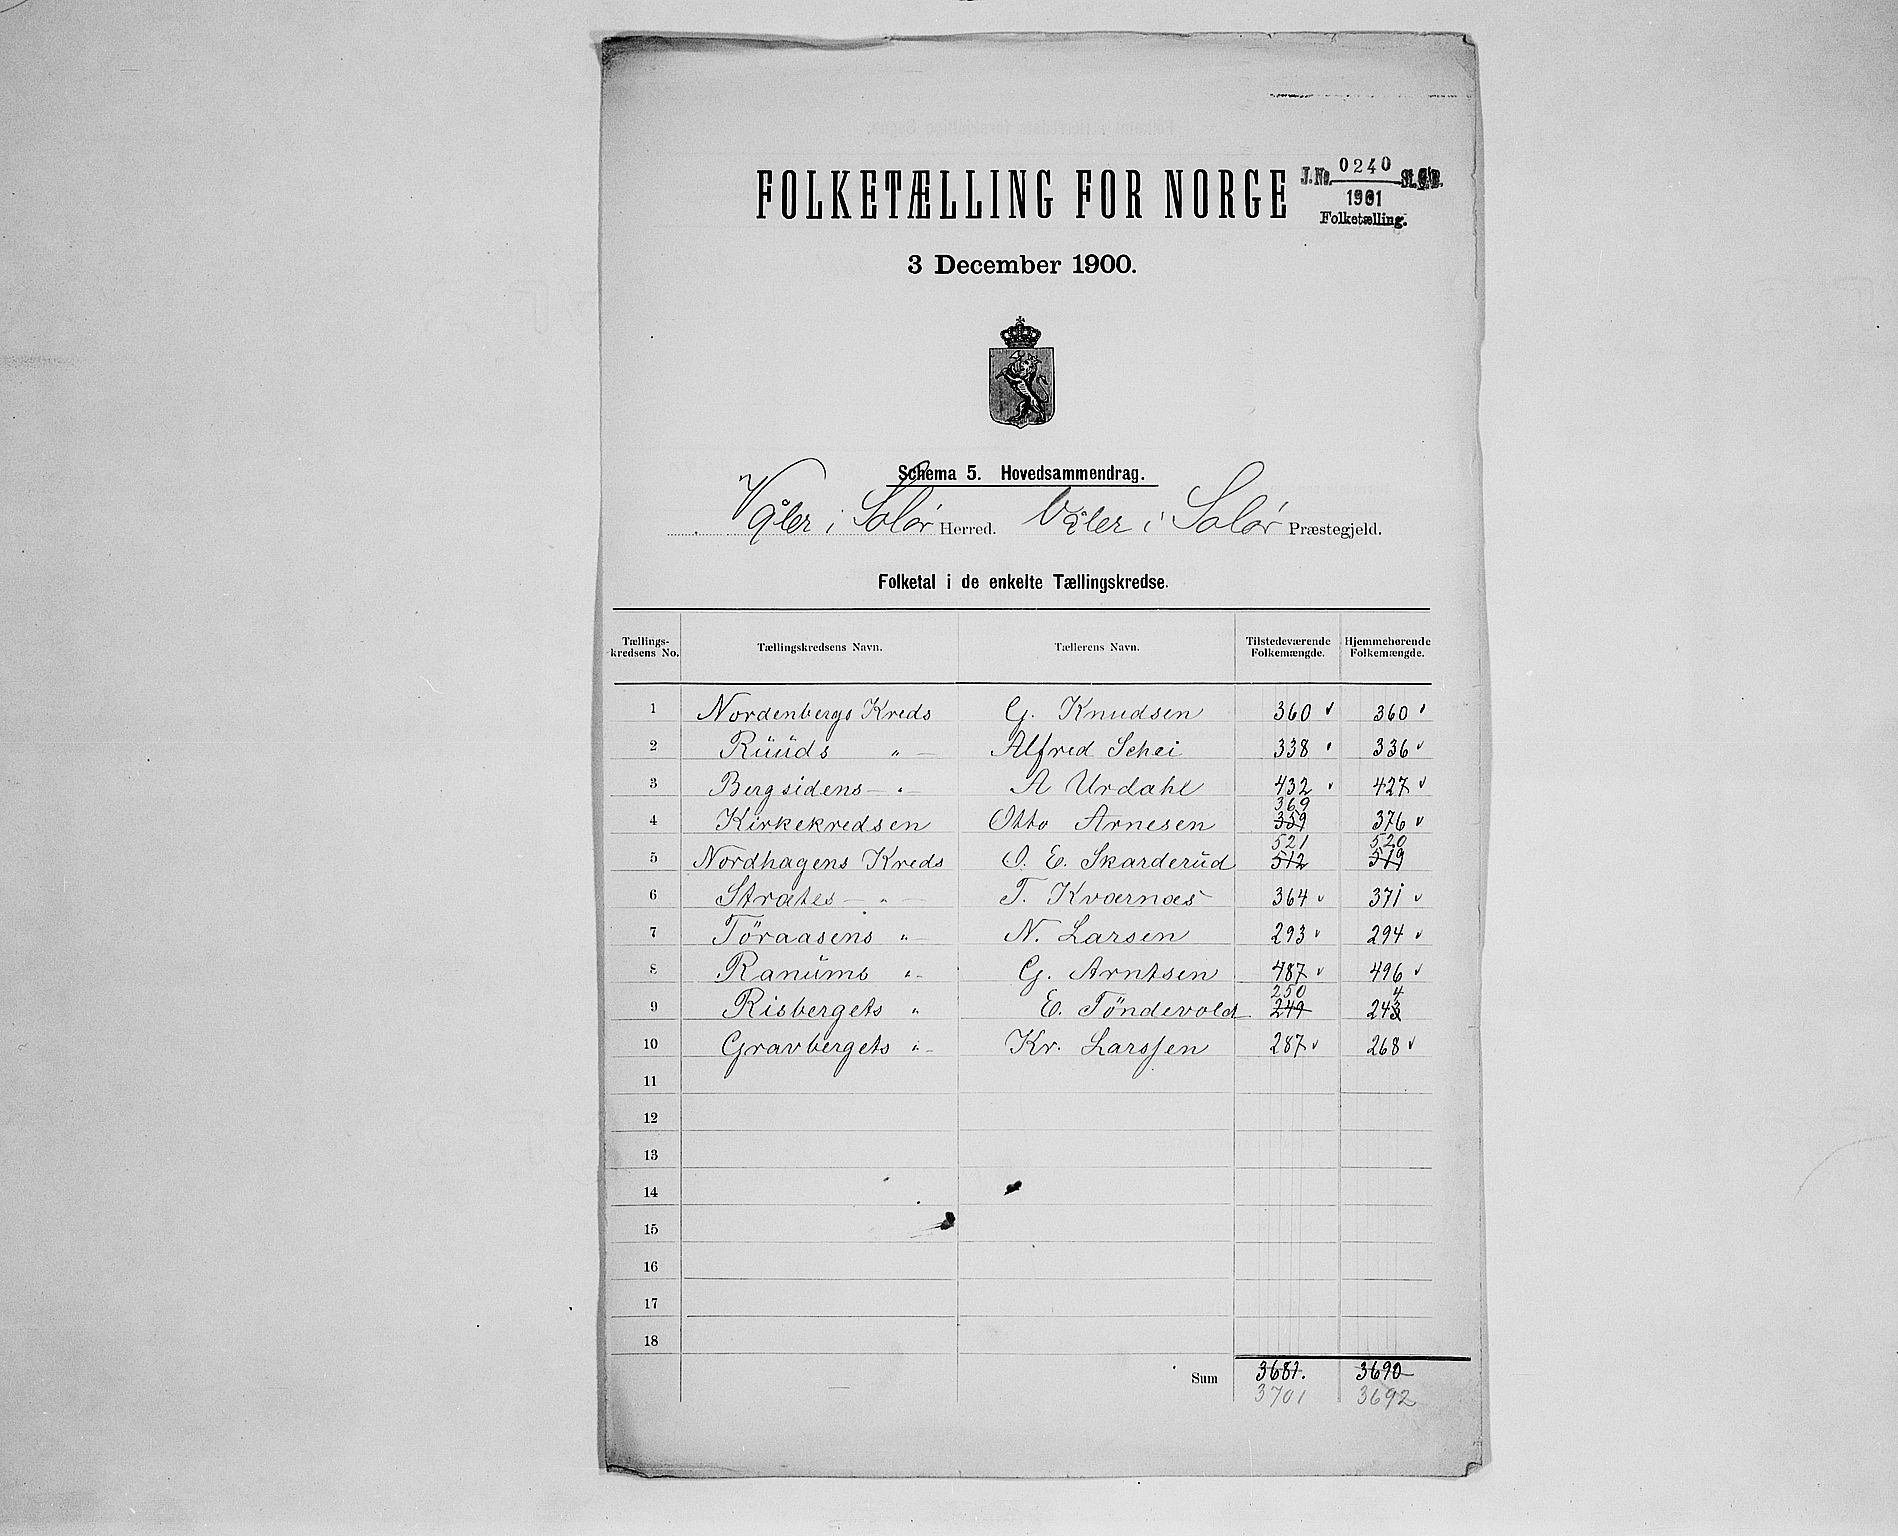 FOLKETÆLLING FOR NORGE
J.No. 0240 St.C.B.
1901
Folketælling.
3 December 1900.
Schema 5. Hovedsammendrag.
Våler i Solør Herred. Våler i Solør Præstegjeld.
Folketal i de enkelte Tællingskredse.
Tællings-kredsens No. Tællingskredsens Navn. Tællerens Navn. Tilstedeværende Folkemængde. Hjemmehørende Folkemængde.
1 Nordenbergs Kreds G. Knudsen 360 360
2 Rüüds " Alfred Schei 338 336
3 Bergsidens " A Urdahl 432 427
4 Kirkekredsen Otto Arnesen 369 359 376
5 Nordhagens Kreds O. E. Skarderüd 521 512 520 519
6 Strates " T. Kværnæs 364 371
7 Töraasens " N. Larsen 293 294
8 Ranüms " G. Arntsen 487 496
9 Risbergets " E. Töndevold 250 249 4 243
10 Gravbergets " Kr. Larssen 287 268
11
12
13
14
15
16
17
18
Sum 3681. 3690
3701 3692